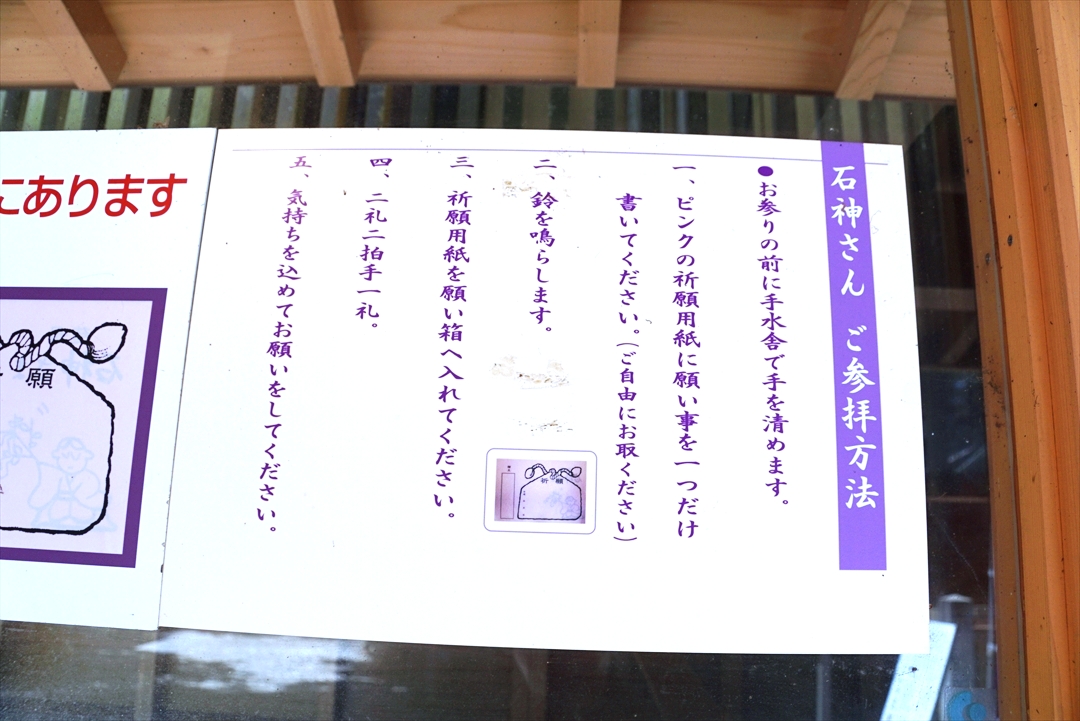 石神さん ご参拝方法
●お参りの前に手水舎で手を清めます。
一、ピンクの祈願用紙に願い事を一つだけ
書いてください。(ご自由にお取ください)
二、鈴を鳴らします。
三、祈願用紙を願い箱へ入れてください。
四、二礼二拍手一礼。
五、気持ちを込めてお願いをしてください。
祈 願
にあります
願